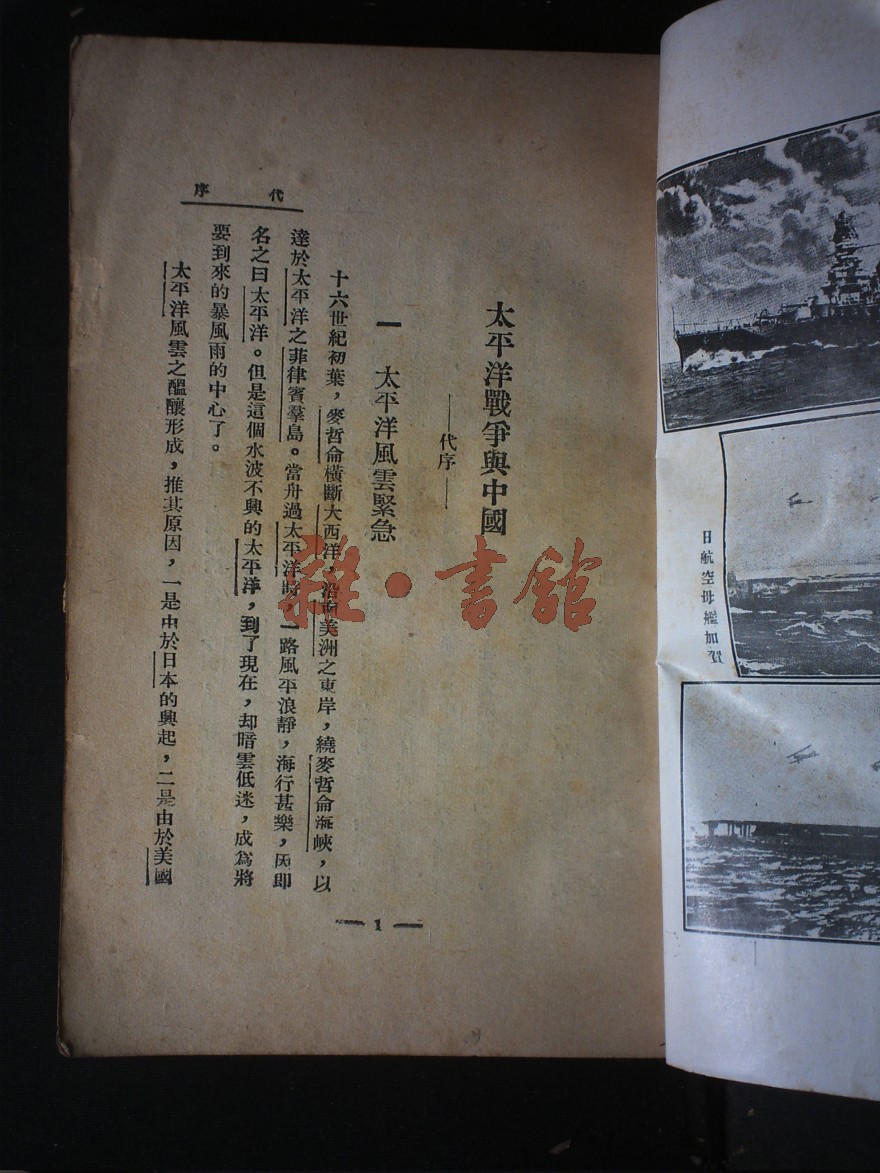 代序
太平洋戰爭與中國
——代序——
一 太平洋風雲緊急
十六世紀初葉，麥哲侖橫斷大西洋，沿南美洲之東岸，繞麥哲侖海峽，以
達於太平洋之菲律賓羣島。當舟過太平洋時，一路風平浪靜，海行甚樂，因即
名之曰太平洋。但是這個水波不興的太平洋，到了現在，却暗雲低迷，成爲將
要到來的暴風雨的中心了。
太平洋風雲之醞釀形成，推其原因，一是由於日本的興起，二是由於美國
— 1 —
日航空母艦加賀
雜·書館